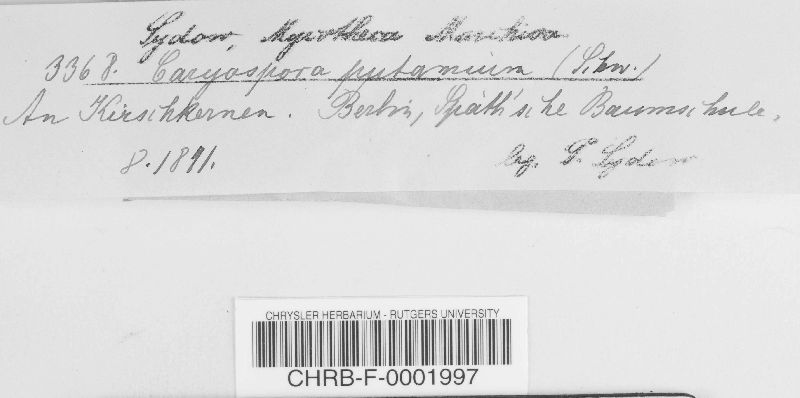 Sydow, Mycotheca Marchica
3368. Caryospora putaminum (Schw.)
An Kirschkernen. Berlin, Späth'sche Baumschule,
8.1891. leg. P. Sydow
CHRYSLER HERBARIUM - RUTGERS UNIVERSITY
CHRB-F-0001997